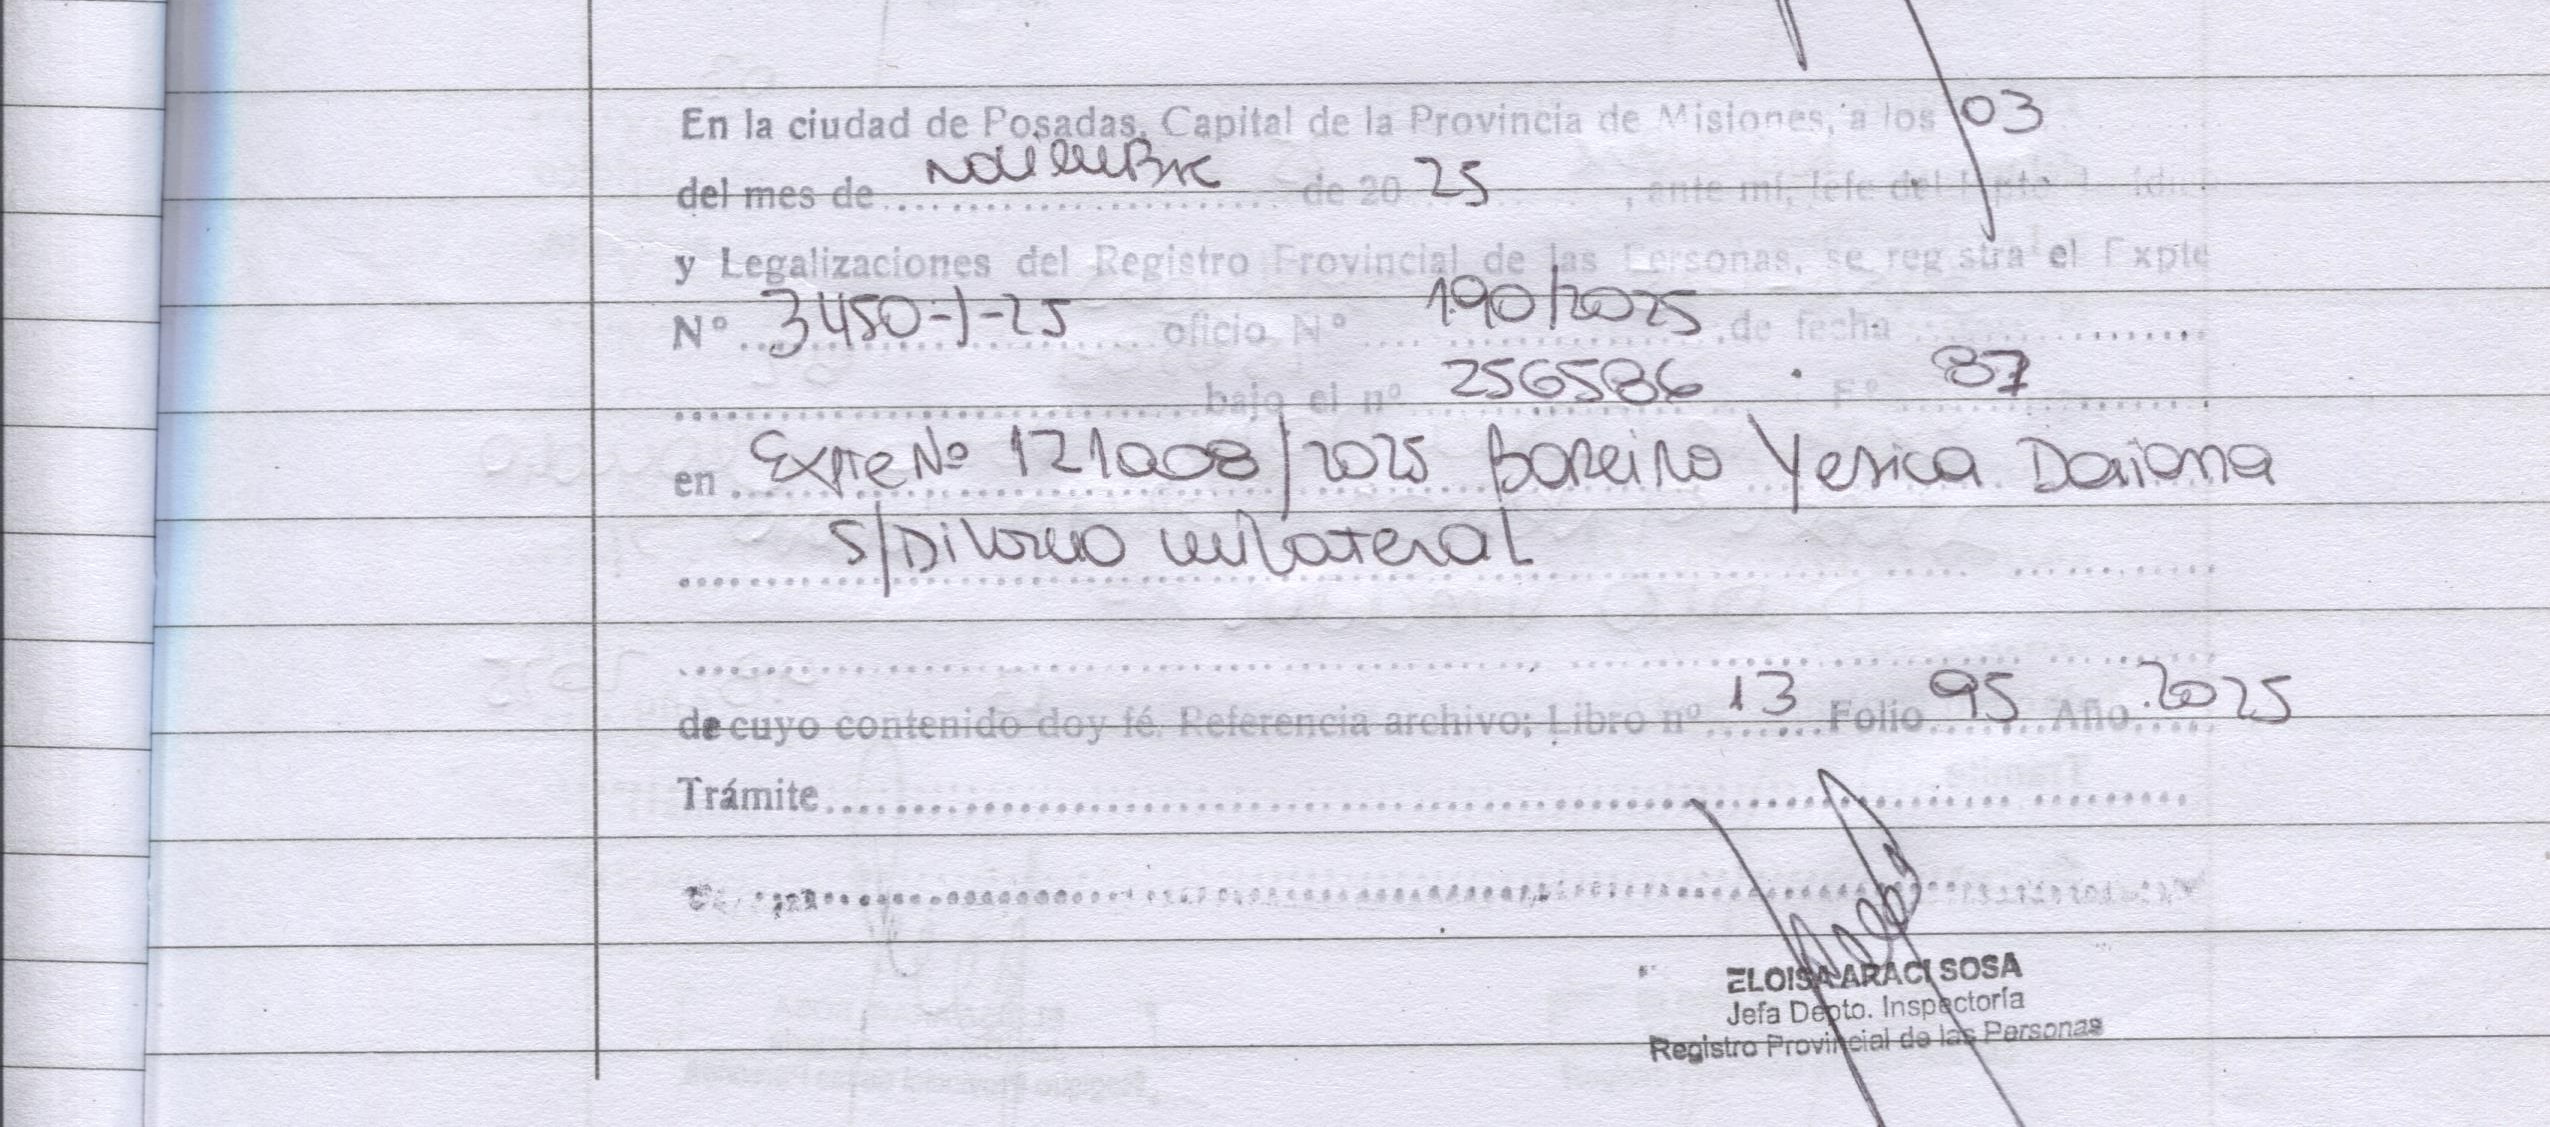 En la ciudad de Posadas, Capital de la Provincia de Misiones, a los 03
del mes de Noviembre de 20 25, ante mí, Jefe del Dpto
y Legalizaciones del Registro Provincial de las Personas, se registra el Expte
Nº 3450-J-25 oficio Nº 190/2025 de fecha
bajo el nº 256586 Fº 87
en Expte Nº 121008/2025 Boreiro Yesica Daiana
S/Divorcio unilateral
de cuyo contenido doy fé. Referencia archivo: Libro nº 13 Folio 95 Año 2025
Trámite
ELOISA ARACI SOSA
Jefa Depto. Inspectoría
Registro Provincial de las Personas